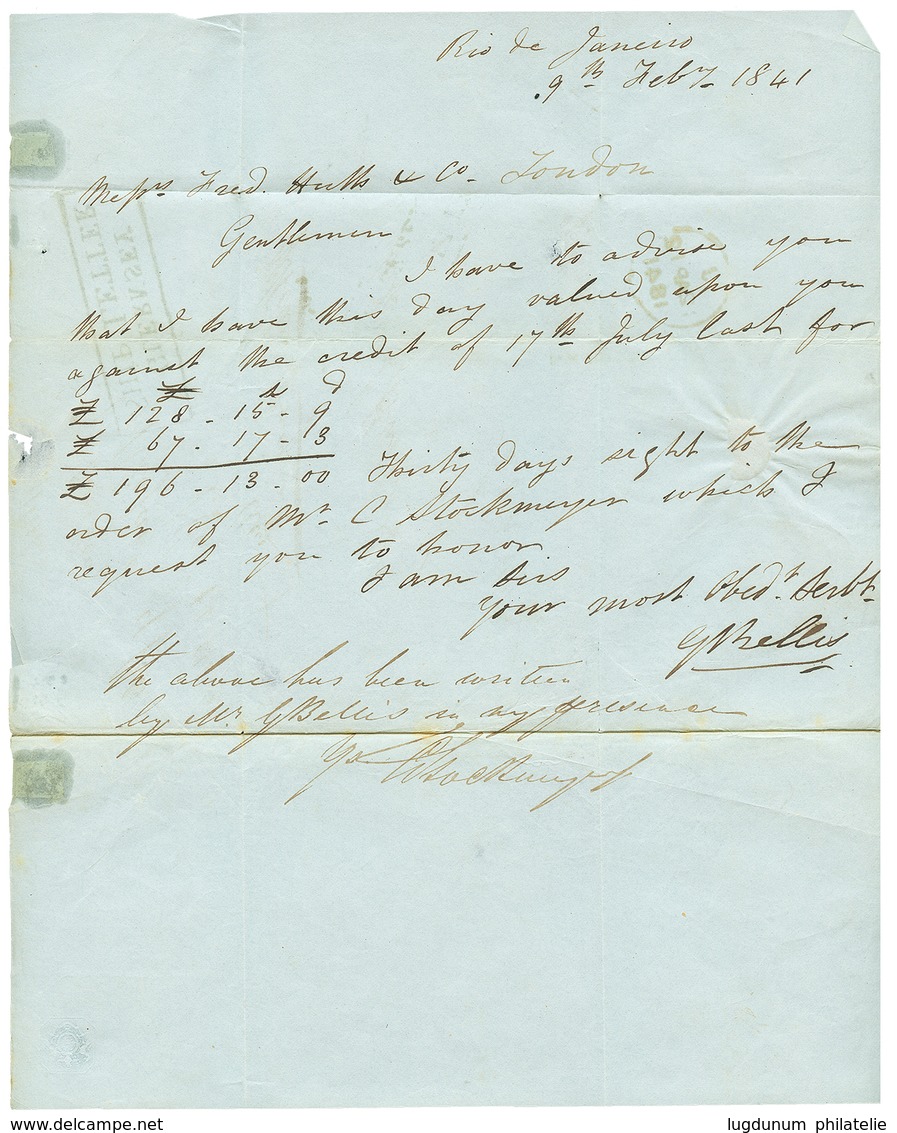 Rio de Janeiro
9th Feby 1841
Messrs Fred. Huth & Co. London
Gentlemen
I have to advise you
that I have this day valued upon you
against the credit of 17th July last for
£ s d
£ 128 - 15 - 9
£ 67 - 17 - 3
£ 196 - 13 - 00 Thirty days sight to the
order of Mr C Stockmeyer which I
request you to honor
I am Sirs
Your most Obedt. Servt.
G Bellis
the above has been written
by Mr. G Bellis in my presence
C Stockmeyer
SHIP LETTER
1841
www.delcampe.net
lugdunum philatelie